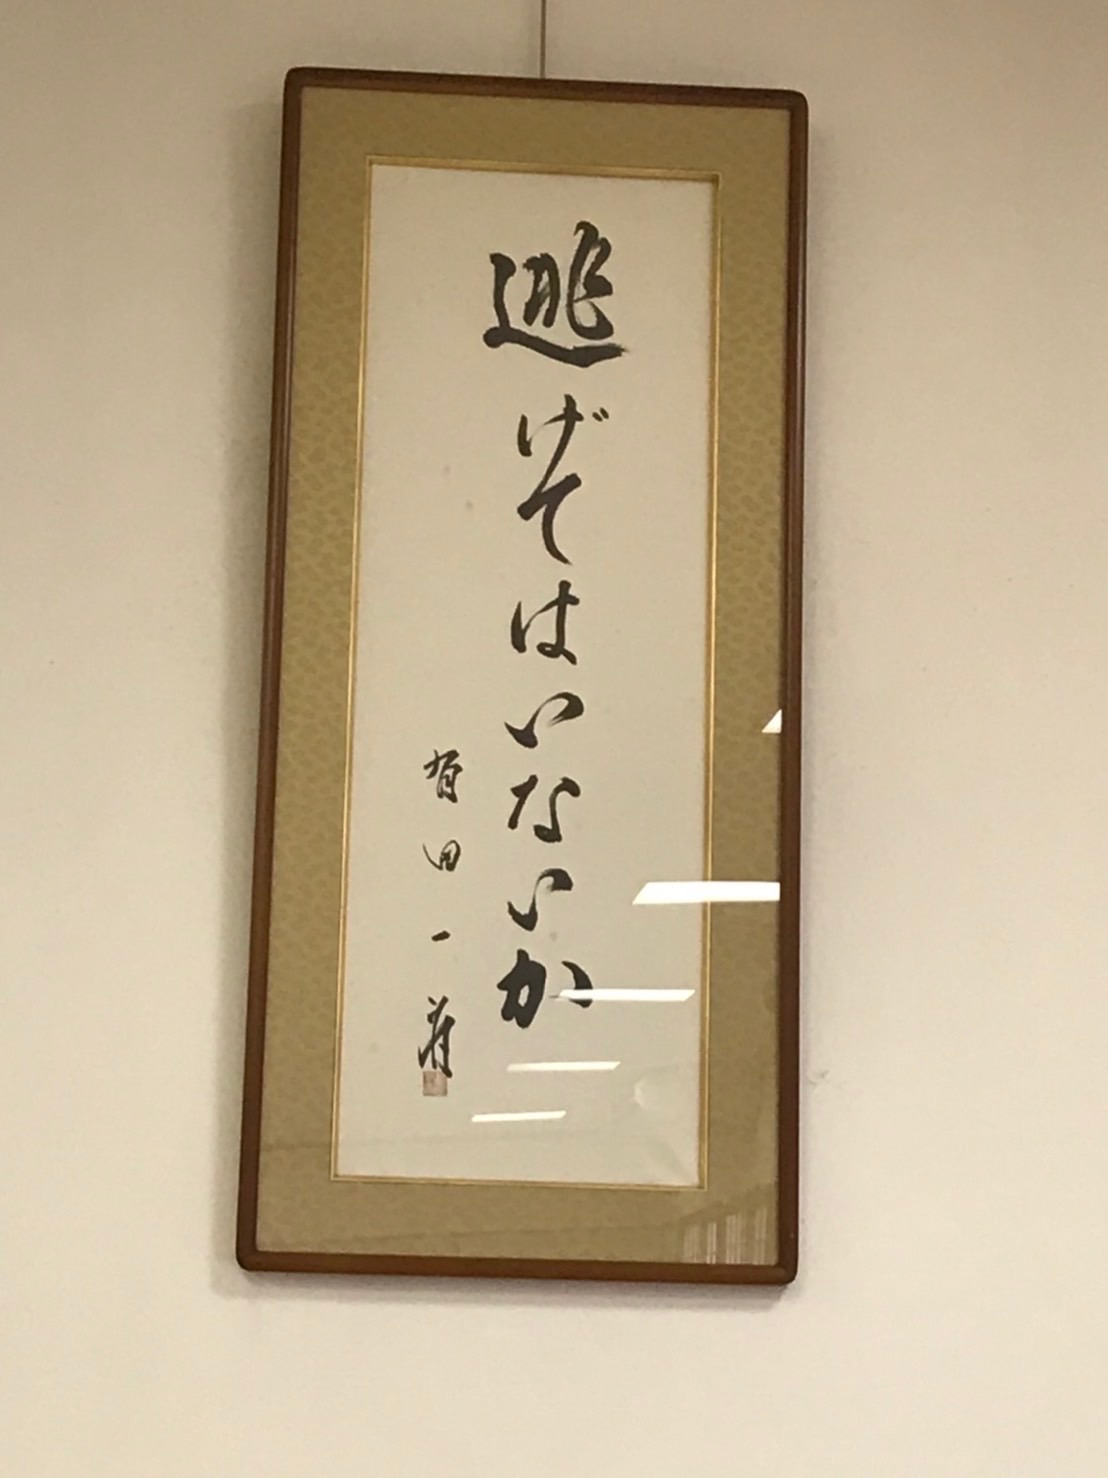 逃げてはいないか
有田一壽